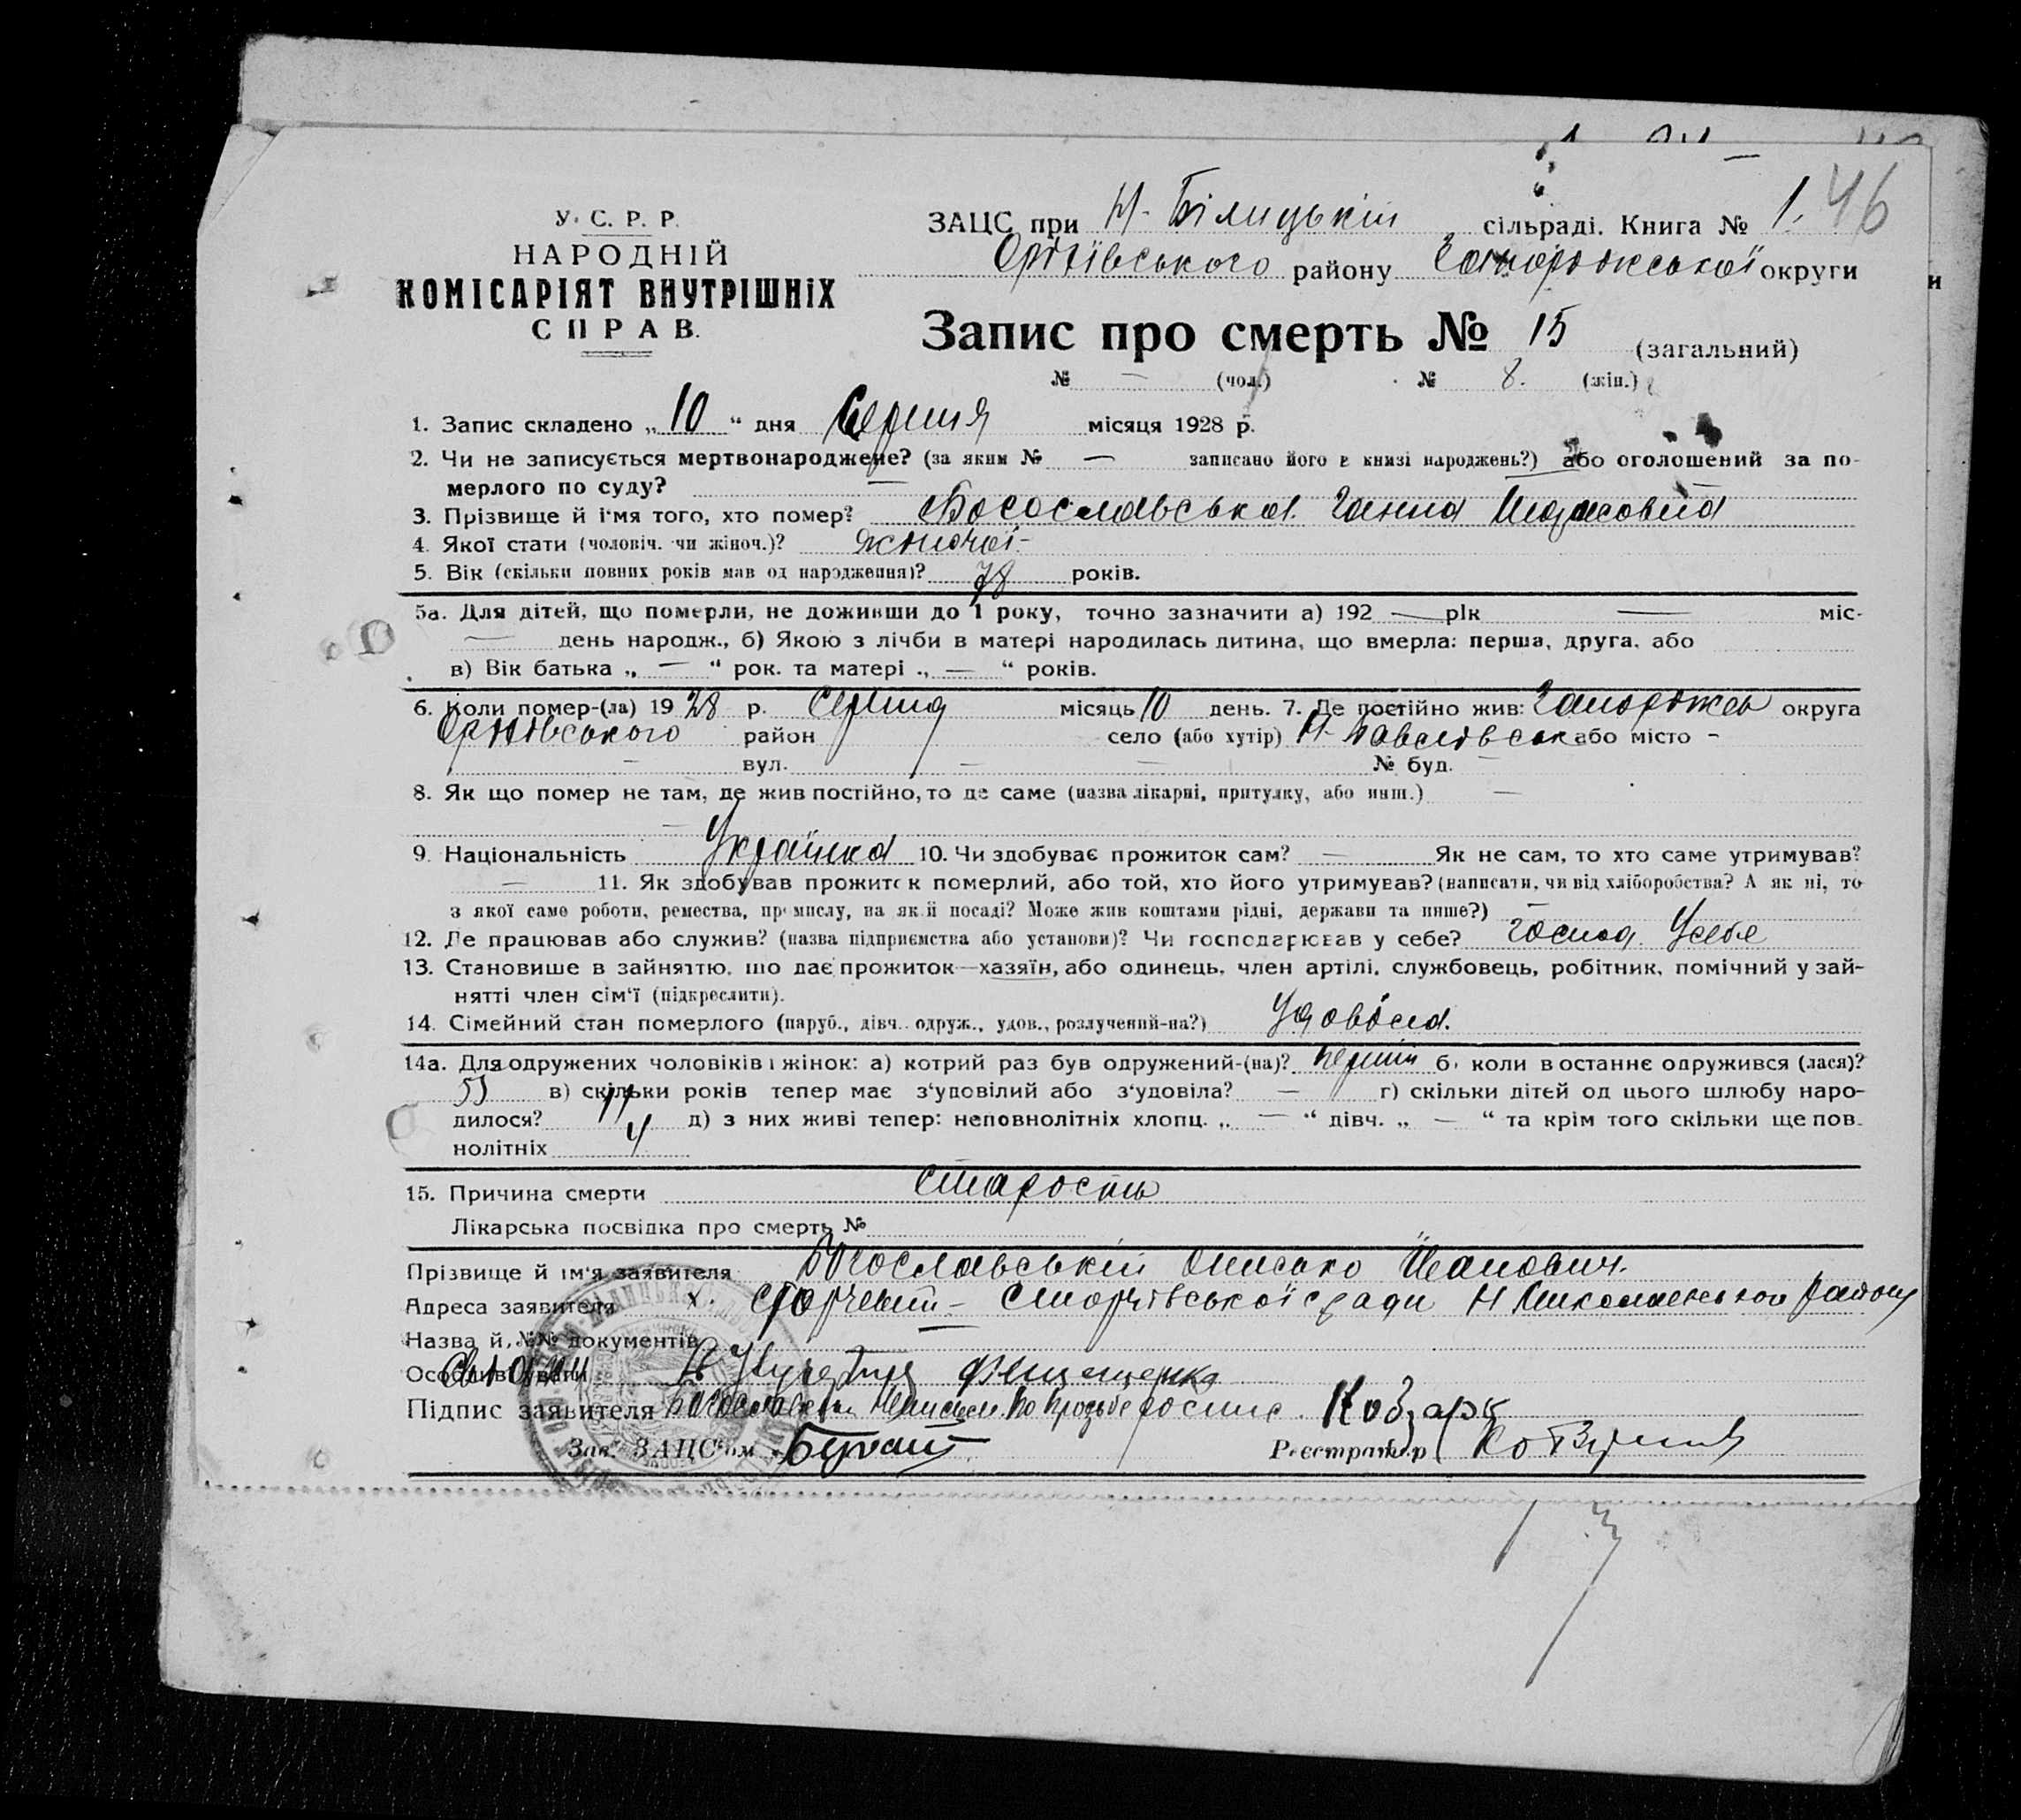 46
У. С. Р. Р.
НАРОДНІЙ
КОМІСАРІЯТ ВНУТРІШНІХ
СПРАВ.
ЗАЦС при Н-Білицькій сільраді. Книга № 1.
району Запоріжської округи
и
Запис про смерть № 15 (загальний)
№ — (чол.) № 8. (жін.)
1. Запис складено „10“ дня Серпня місяця 1928 р.
2. Чи не записується мертвонароджене? (за яким № — записано його в книзі народжень?) або оголошений за по-
мерлого по суду? —
3. Прізвище й ім'я того, хто помер? Богославська Ганна
4. Якої стати (чоловіч. чи жіноч.)? жіночої-
5. Вік (скільки повних років мав од народження)? 78 років.
5а. Для дітей, що померли, не доживши до 1 року, точно зазначити а) 192 — рік — міс-
— день народж., б) Якою з лічби в матері народилась дитина, що вмерла: перша, друга, або
в) Вік батька „ — “ рок. та матері „ — “ років.
6. Коли помер-(ла) 1928 р. Серпня місяць 10 день. 7. Де постійно жив: Запоріжська округа
район село (або хутір) Н-Павлівськ або місто -
— вул. — — № буд. —
8. Як що помер не там, де жив постійно, то де саме (назва лікарні, притулку, або инш.) —
—
9. Національність Українка 10. Чи здобуває прожиток сам? — Як не сам, то хто саме утримував?
— 11. Як здобував прожиток померлий, або той, хто його утримував? (написати, чи від хліборобства? А як ні, то
з якої саме роботи, ремества, промислу, на якій посаді? Може жив коштами рідні, держави та инше?) —
12. Де працював або служив? (назва підприємства або установи)? Чи господарював у себе? господ. Усебе
13. Становище в зайняттю, що дає прожиток—хазяїн, або одинець, член артілі, службовець, робітник, помічний у зай-
нятті член сім'ї (підкреслити).
14. Сімейний стан померлого (паруб., дівч. одруж., удов., розлучений-на?) Удовіла.
14а. Для одружених чоловіків і жінок: а) котрий раз був одружений-(на)? перший б) коли в останнє одружився (лася)?
55 в) скільки років тепер має з'удовілий або з'удовіла? — г) скільки дітей од цього шлюбу наро-
дилося? 11 д) з них живі тепер: неповнолітніх хлопц. „ — “ дівч. „ — “ та крім того скільки ще пов-
нолітніх 4
15. Причина смерти старость
Лікарська посвідка про смерть №
Прізвище й ім'я заявителя Богославській Онисько Иванович.
Адреса заявителя х. ради району
Назва й №№ документів
Особливі уваги
Підпис заявителя По прозьбе роспис. Кобзарь
Зав. ЗАЦС'ом Реєстратор